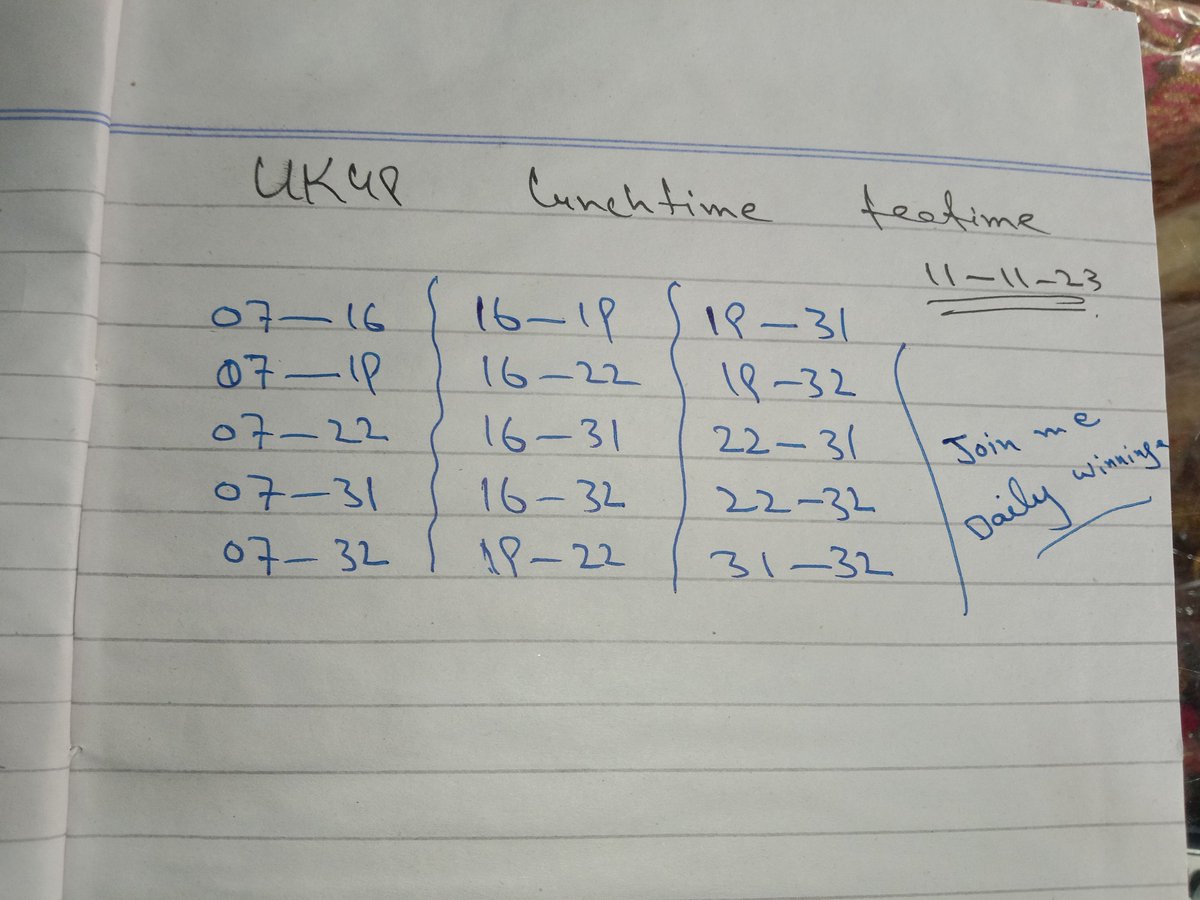 UK49 Lunchtime teatime
11-11-23
07-16 16-19 19-31
07-19 16-22 19-32
07-22 16-31 22-31
07-31 16-32 22-32
07-32 19-22 31-32
Join me
Daily winnings